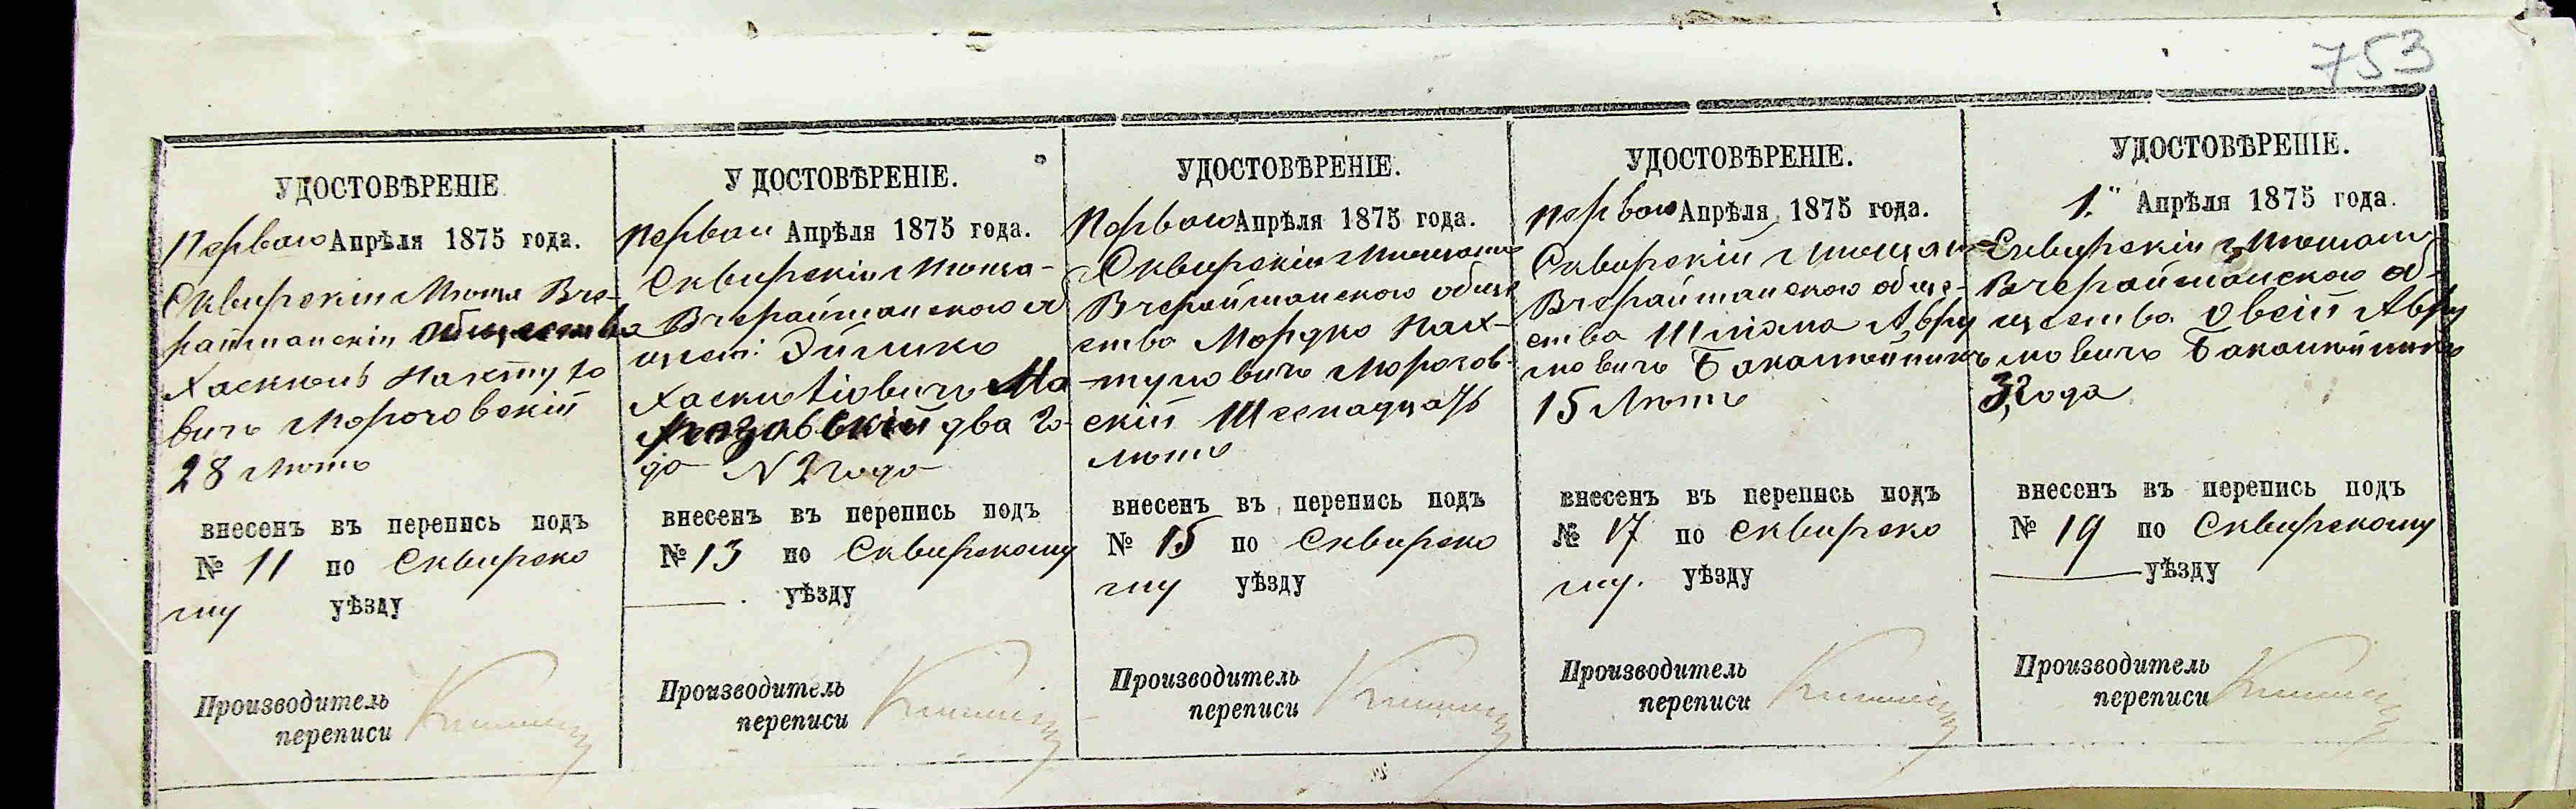 753
УДОСТОВѢРЕНІЕ
Перваго Апрѣля 1875 года.
Сквирскій Мѣщан Вче-
райшанскій общества
Хаскель Нахту хо
вичъ Мороговскій
28 лѣтъ
внесенъ въ перепись подъ
№ 11 по Сквирско
му уѣзду
Производитель
переписи
УДОСТОВѢРЕНІЕ.
Перваго Апрѣля 1875 года.
Сквирскій Мѣща-
Вчерайшанскаго об
щест: Эйлико
Хаскелёвичъ Мо
роговскій два го-
да N 2 года
внесенъ въ перепись подъ
№ 13 по Сквирскому
уѣзду
Производитель
переписи
УДОСТОВѢРЕНІЕ.
Перваго Апрѣля 1875 года.
Сквирскій Мѣщанъ
Вчерайшанскаго обще
ства Мордко Нах-
тумовичъ Морогов-
скій Шеснадцать
лѣтъ
внесенъ въ перепись подъ
№ 15 по Сквирско
му уѣзду
Производитель
переписи
УДОСТОВѢРЕНІЕ.
Перваго Апрѣля 1875 года.
Сквирскій Мѣщан
Вчерайшанскаго обще-
ства Шліома Авру
мовичъ Бакалейникъ
15 лѣтъ
внесенъ въ перепись подъ
№ 17 по Сквирско
му. уѣзду
Производитель
переписи
УДОСТОВѢРЕНІЕ.
1." Апрѣля 1875 года.
Сквирскій Мѣщан
Вчерайшанскаго об-
щества Овсій Авру
мовичъ Бакалейникъ
3 года
внесенъ въ перепись подъ
№ 19 по Сквирскому
уѣзду
Производитель
переписи